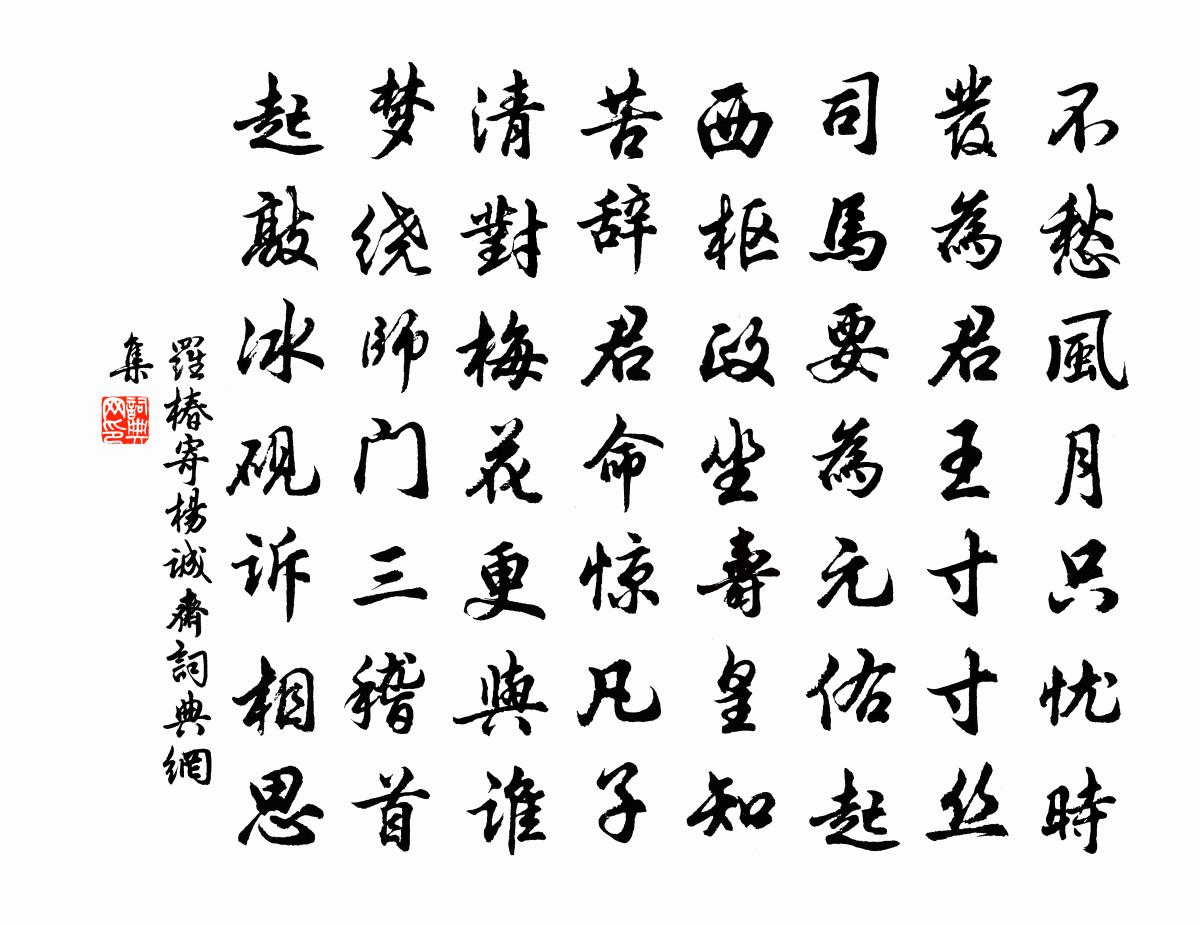 不愁風月只忧時
發為君王寸寸丝
司馬要為元佑起
西枢政坐壽皇知
苦辞君命惊凡子
清對梅花更與谁
梦绕師门三稽首
起敲冰砚诉相思
羅椿寄楊诚斋詞典網
集
詞典
网印